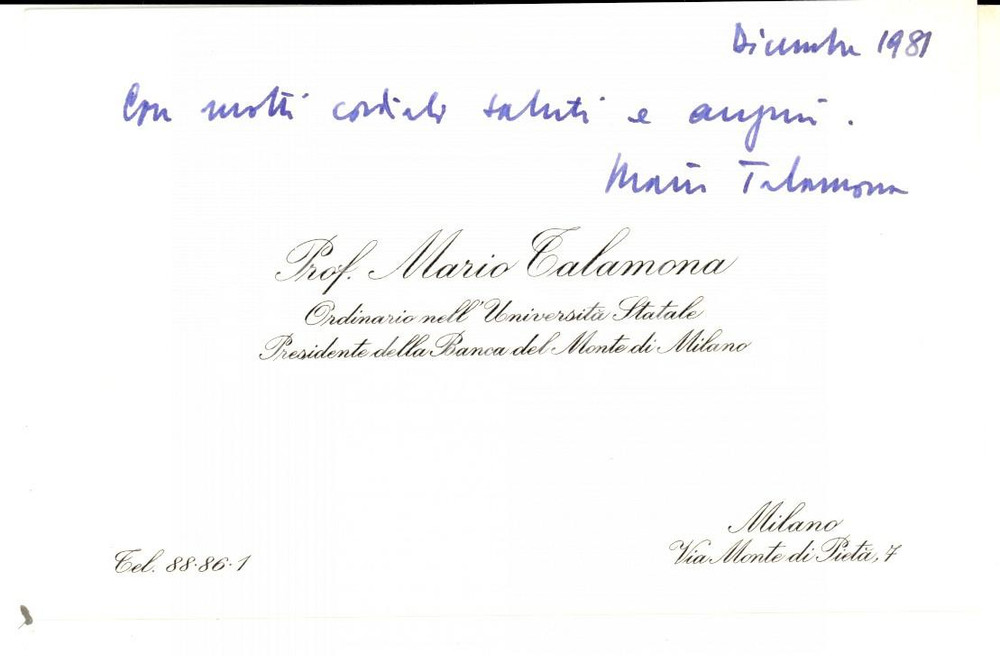 Dicembre 1981
Con molti cordiali saluti e auguri.
Mario Talamona
Prof. Mario Talamona
Ordinario nell'Università Statale
Presidente della Banca del Monte di Milano
Milano
Tel. 88·86·1
Via Monte di Pietà, 7